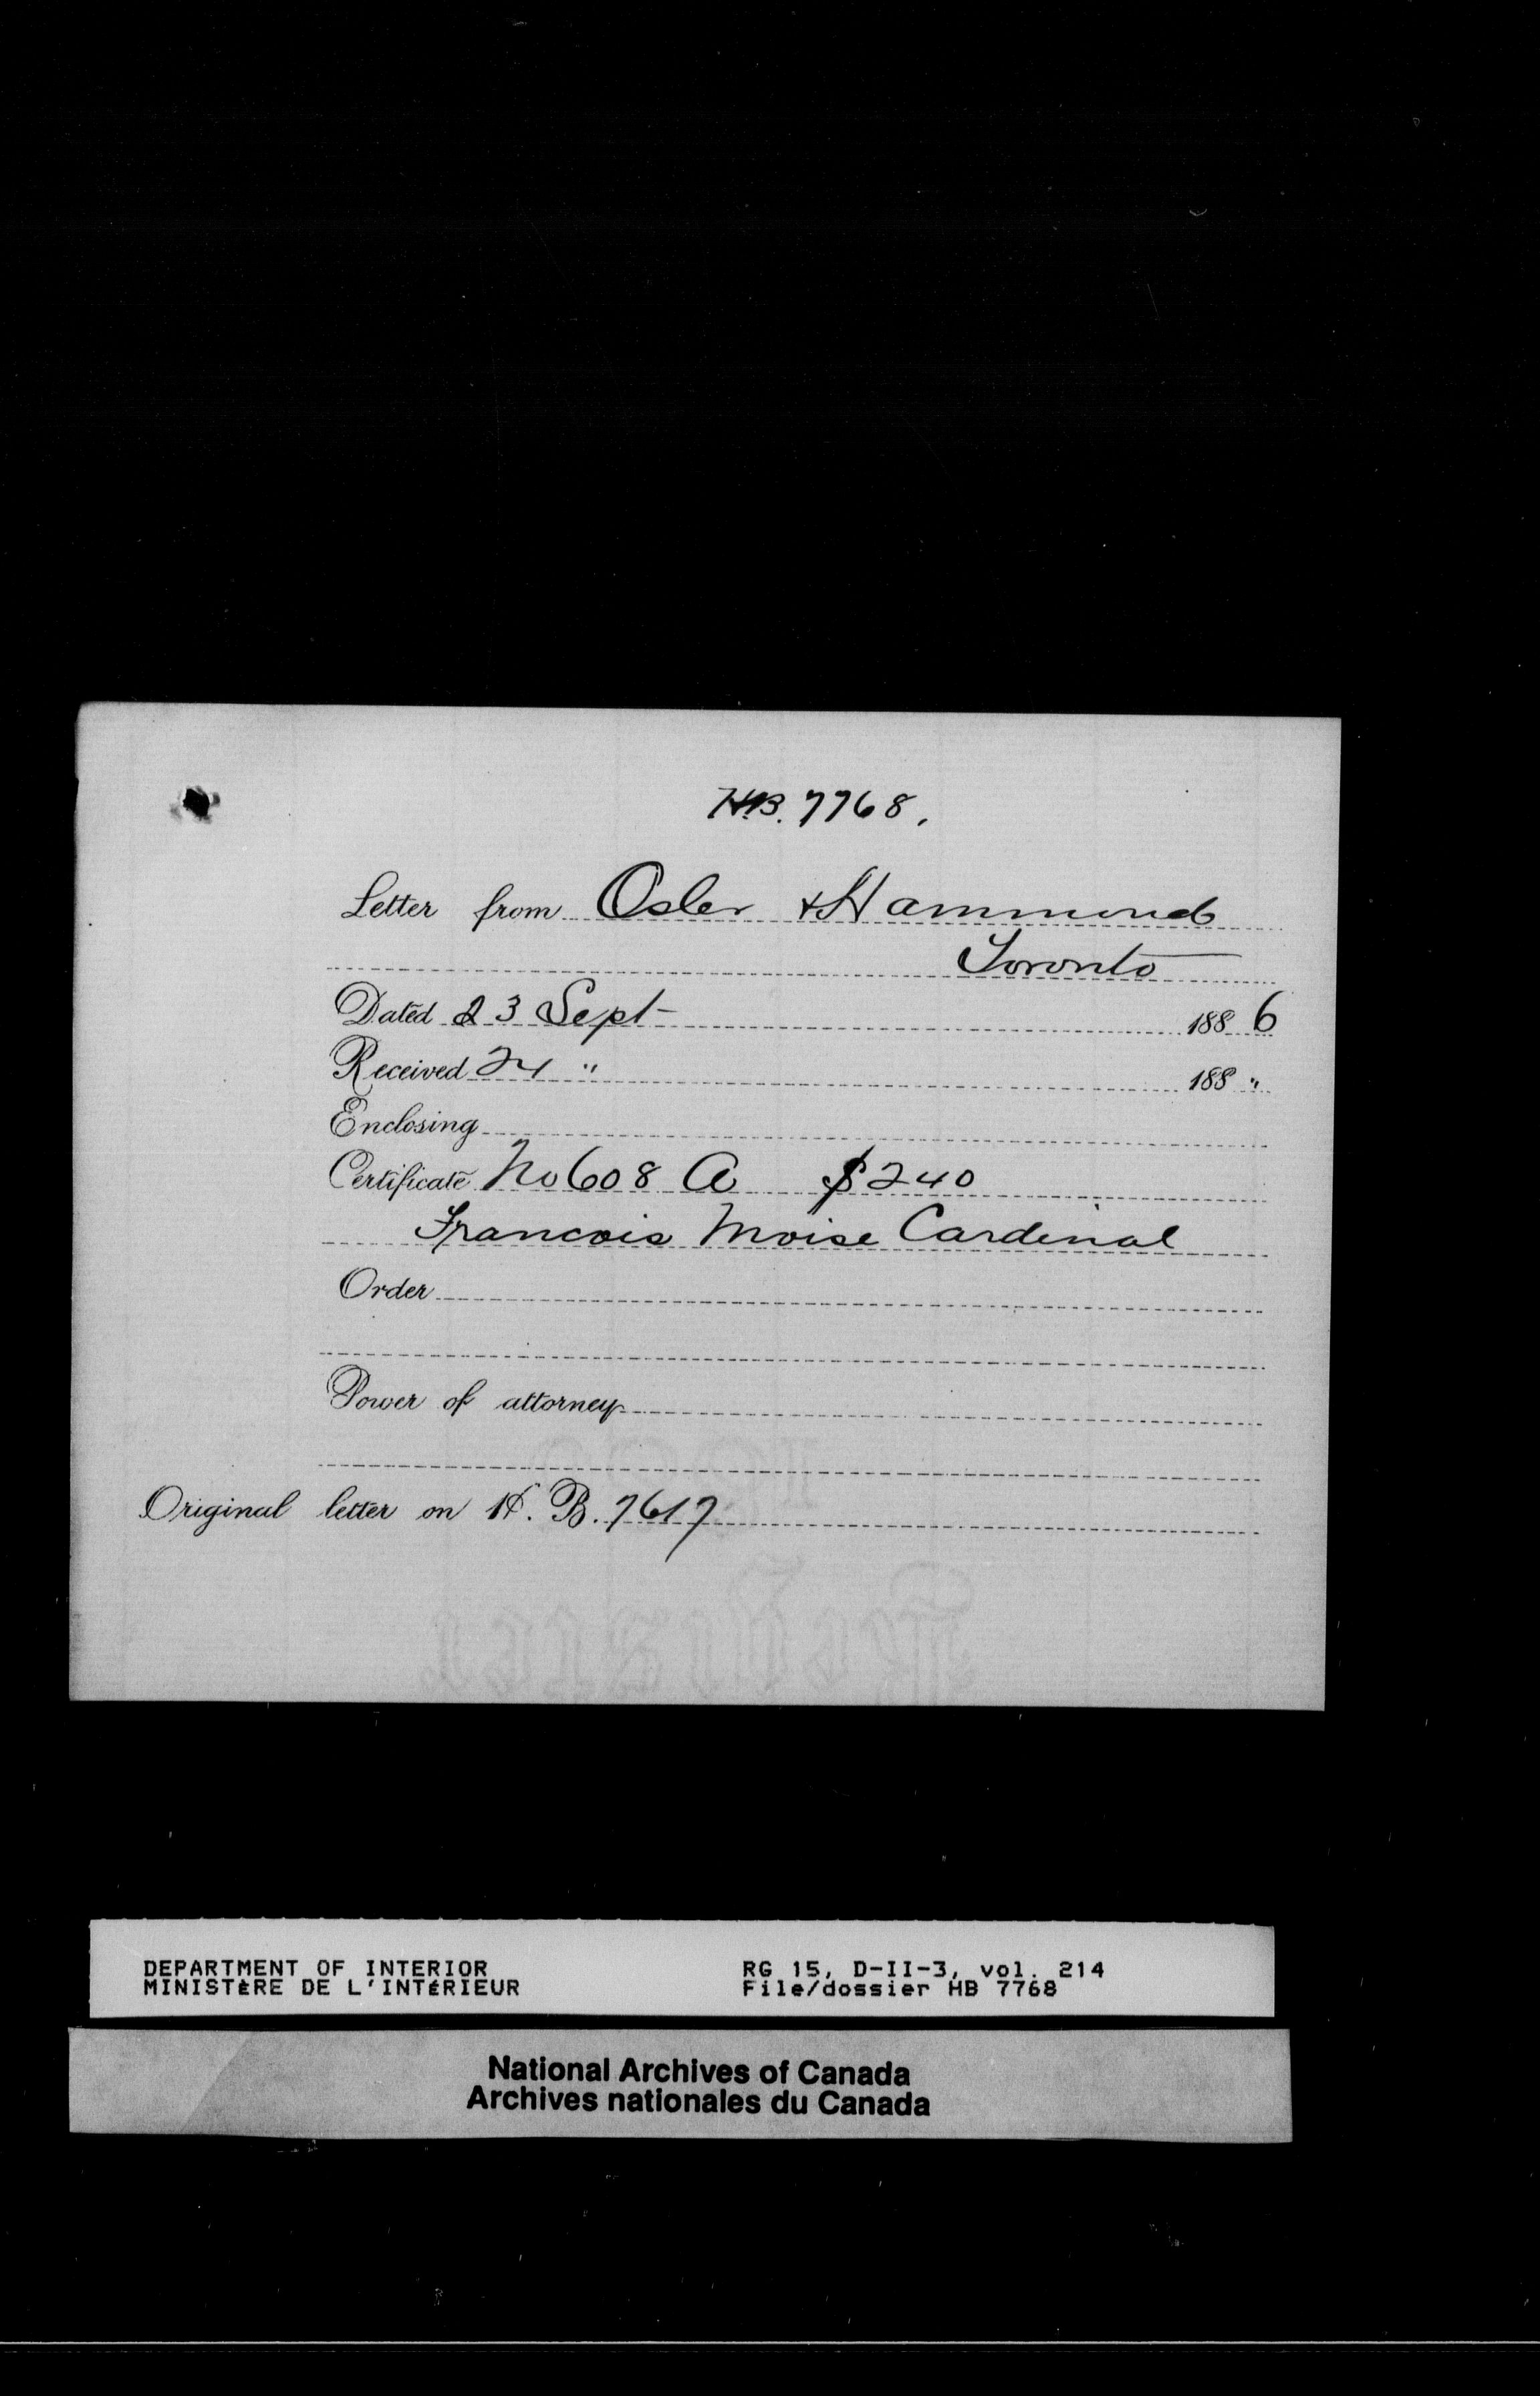 HB. 7768.
Letter from Osler & Hammond
Toronto
Dated 23 Sept 1886
Received 24 " 188 "
Enclosing
Certificate No 608 A $240
Francois Moise Cardinal
Order
Power of attorney
Original letter on H. B. 7617
DEPARTMENT OF INTERIOR RG 15, D-II-3, vol. 214
MINISTÈRE DE L'INTÉRIEUR File/dossier HB 7768
National Archives of Canada
Archives nationales du Canada